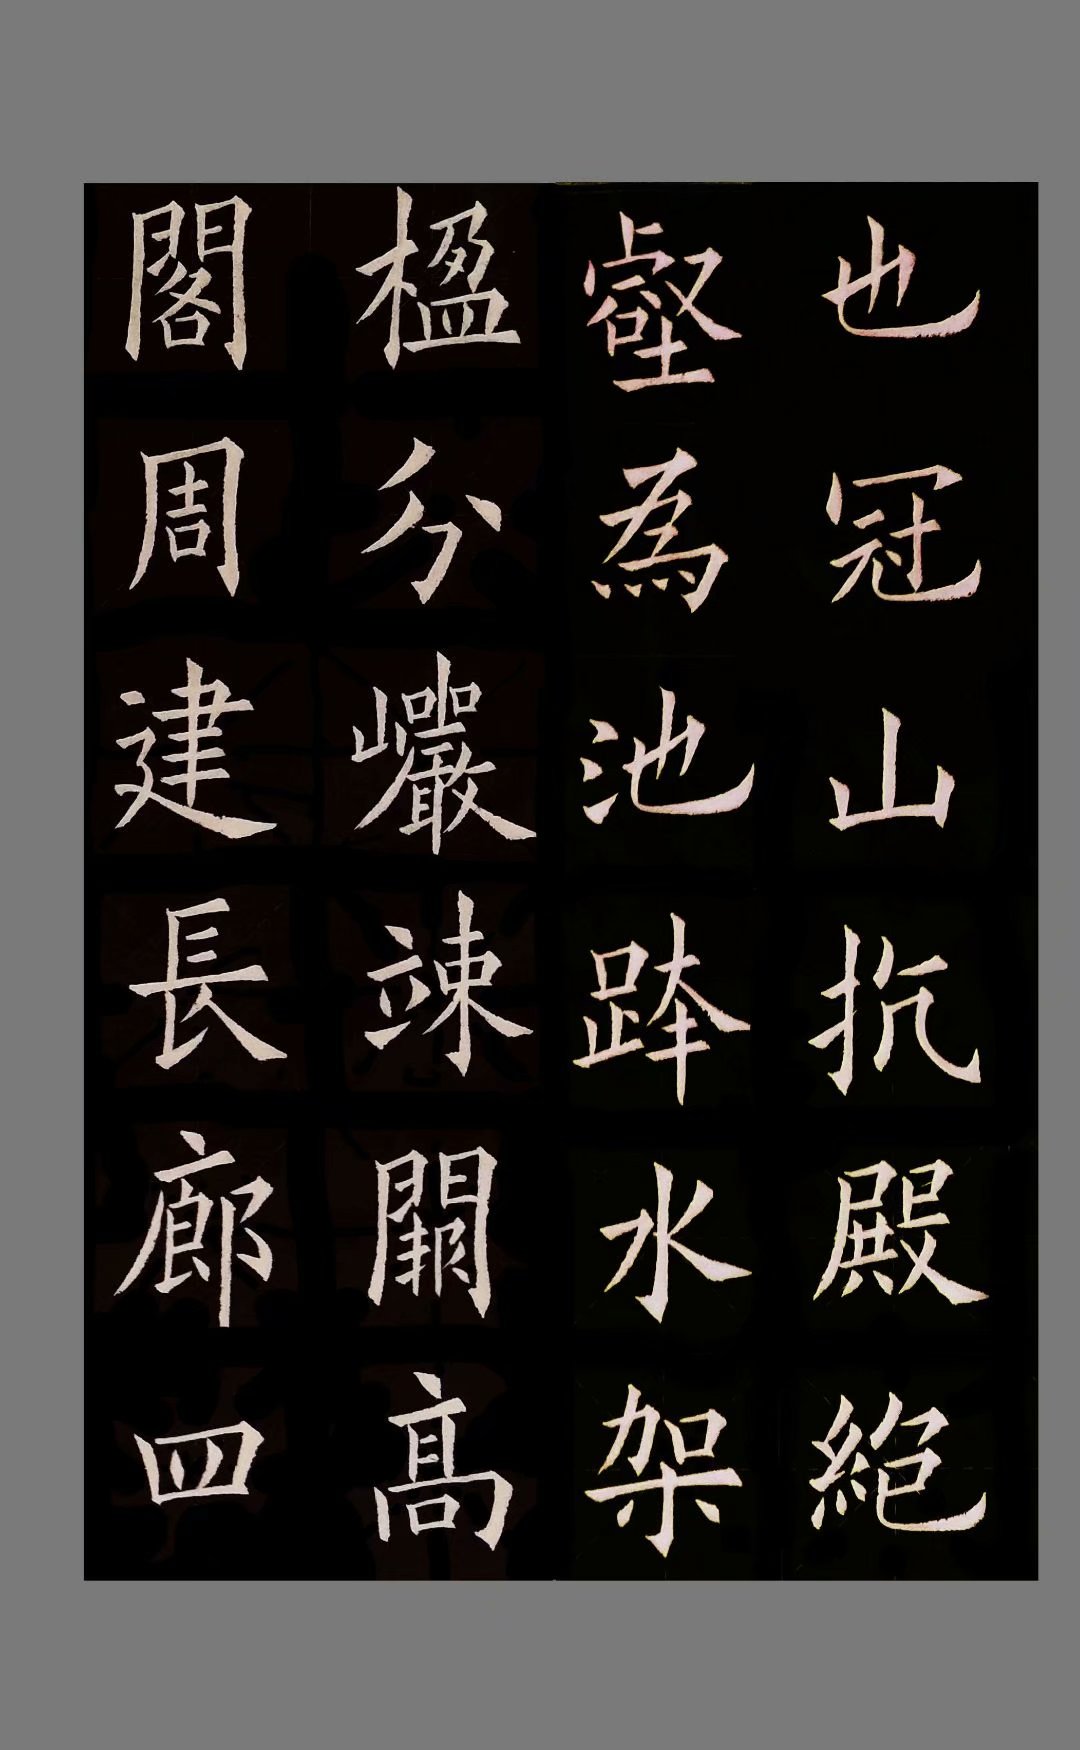 也冠山抗殿絶
壑為池跨水架
楹分巖竦闕高
閣周建長廊四